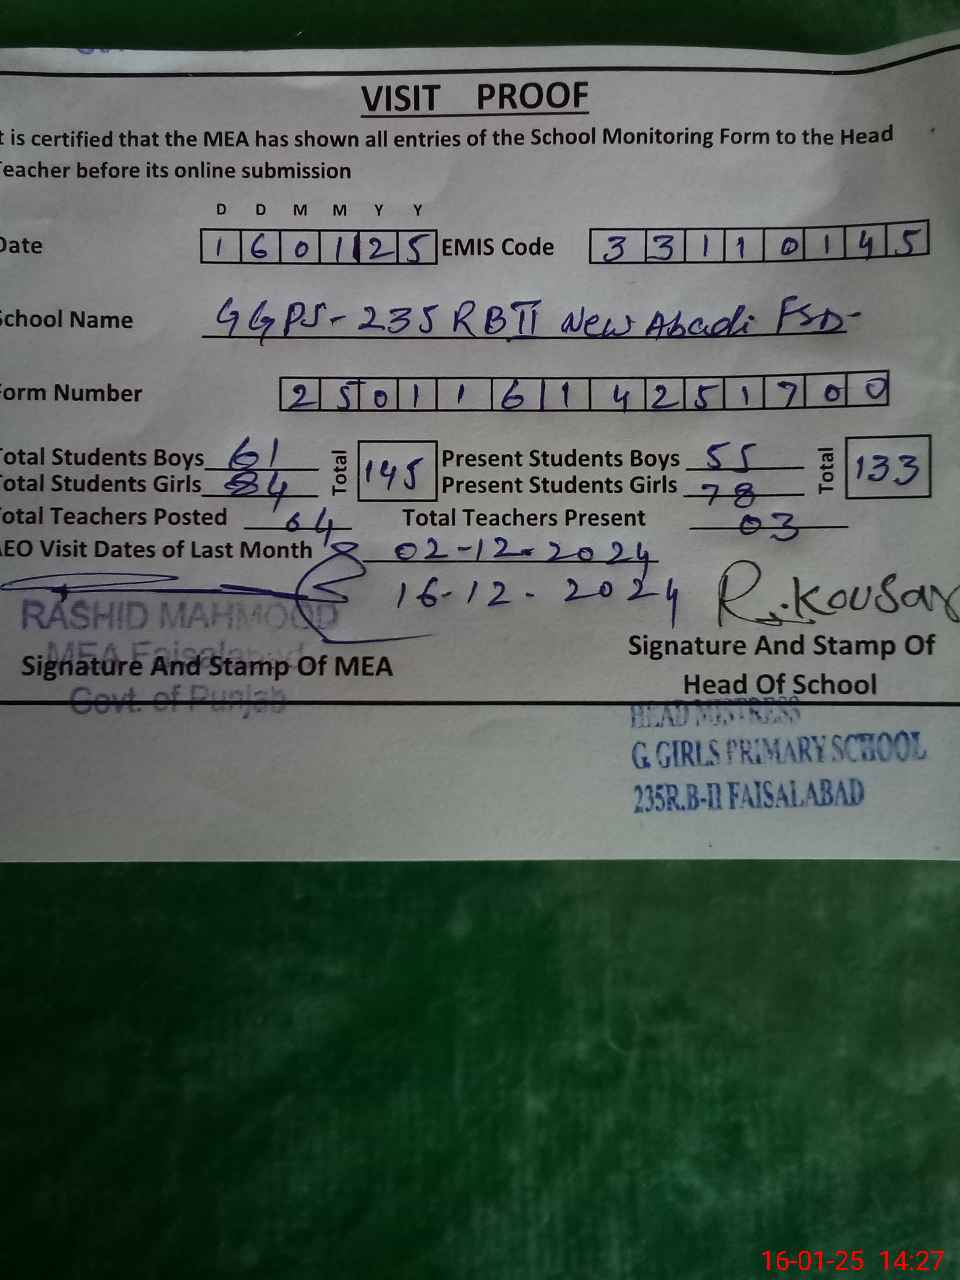 VISIT PROOF
t is certified that the MEA has shown all entries of the School Monitoring Form to the Head
eacher before its online submission
D D M M Y Y
Date 1 6 0 1 2 5 EMIS Code 3 3 1 1 0 1 4 5
School Name GGPS-235 RB II New Abadi FSD-
orm Number 2 5 0 1 1 6 1 4 2 5 1 7 0 0
otal Students Boys 61 Total 145 Present Students Boys 55 Total 133
otal Students Girls 84 Present Students Girls 78
otal Teachers Posted 04 Total Teachers Present 03
AEO Visit Dates of Last Month 02-12-2024
16-12-2024 R.Kousar
RASHID MAHMOOD
MEA Faisalabad
Signature And Stamp Of MEA
Govt. of Punjab
Signature And Stamp Of
Head Of School
HEAD MISTRESS
G. GIRLS PRIMARY SCHOOL
235R.B-II FAISALABAD
16-01-25 14:27